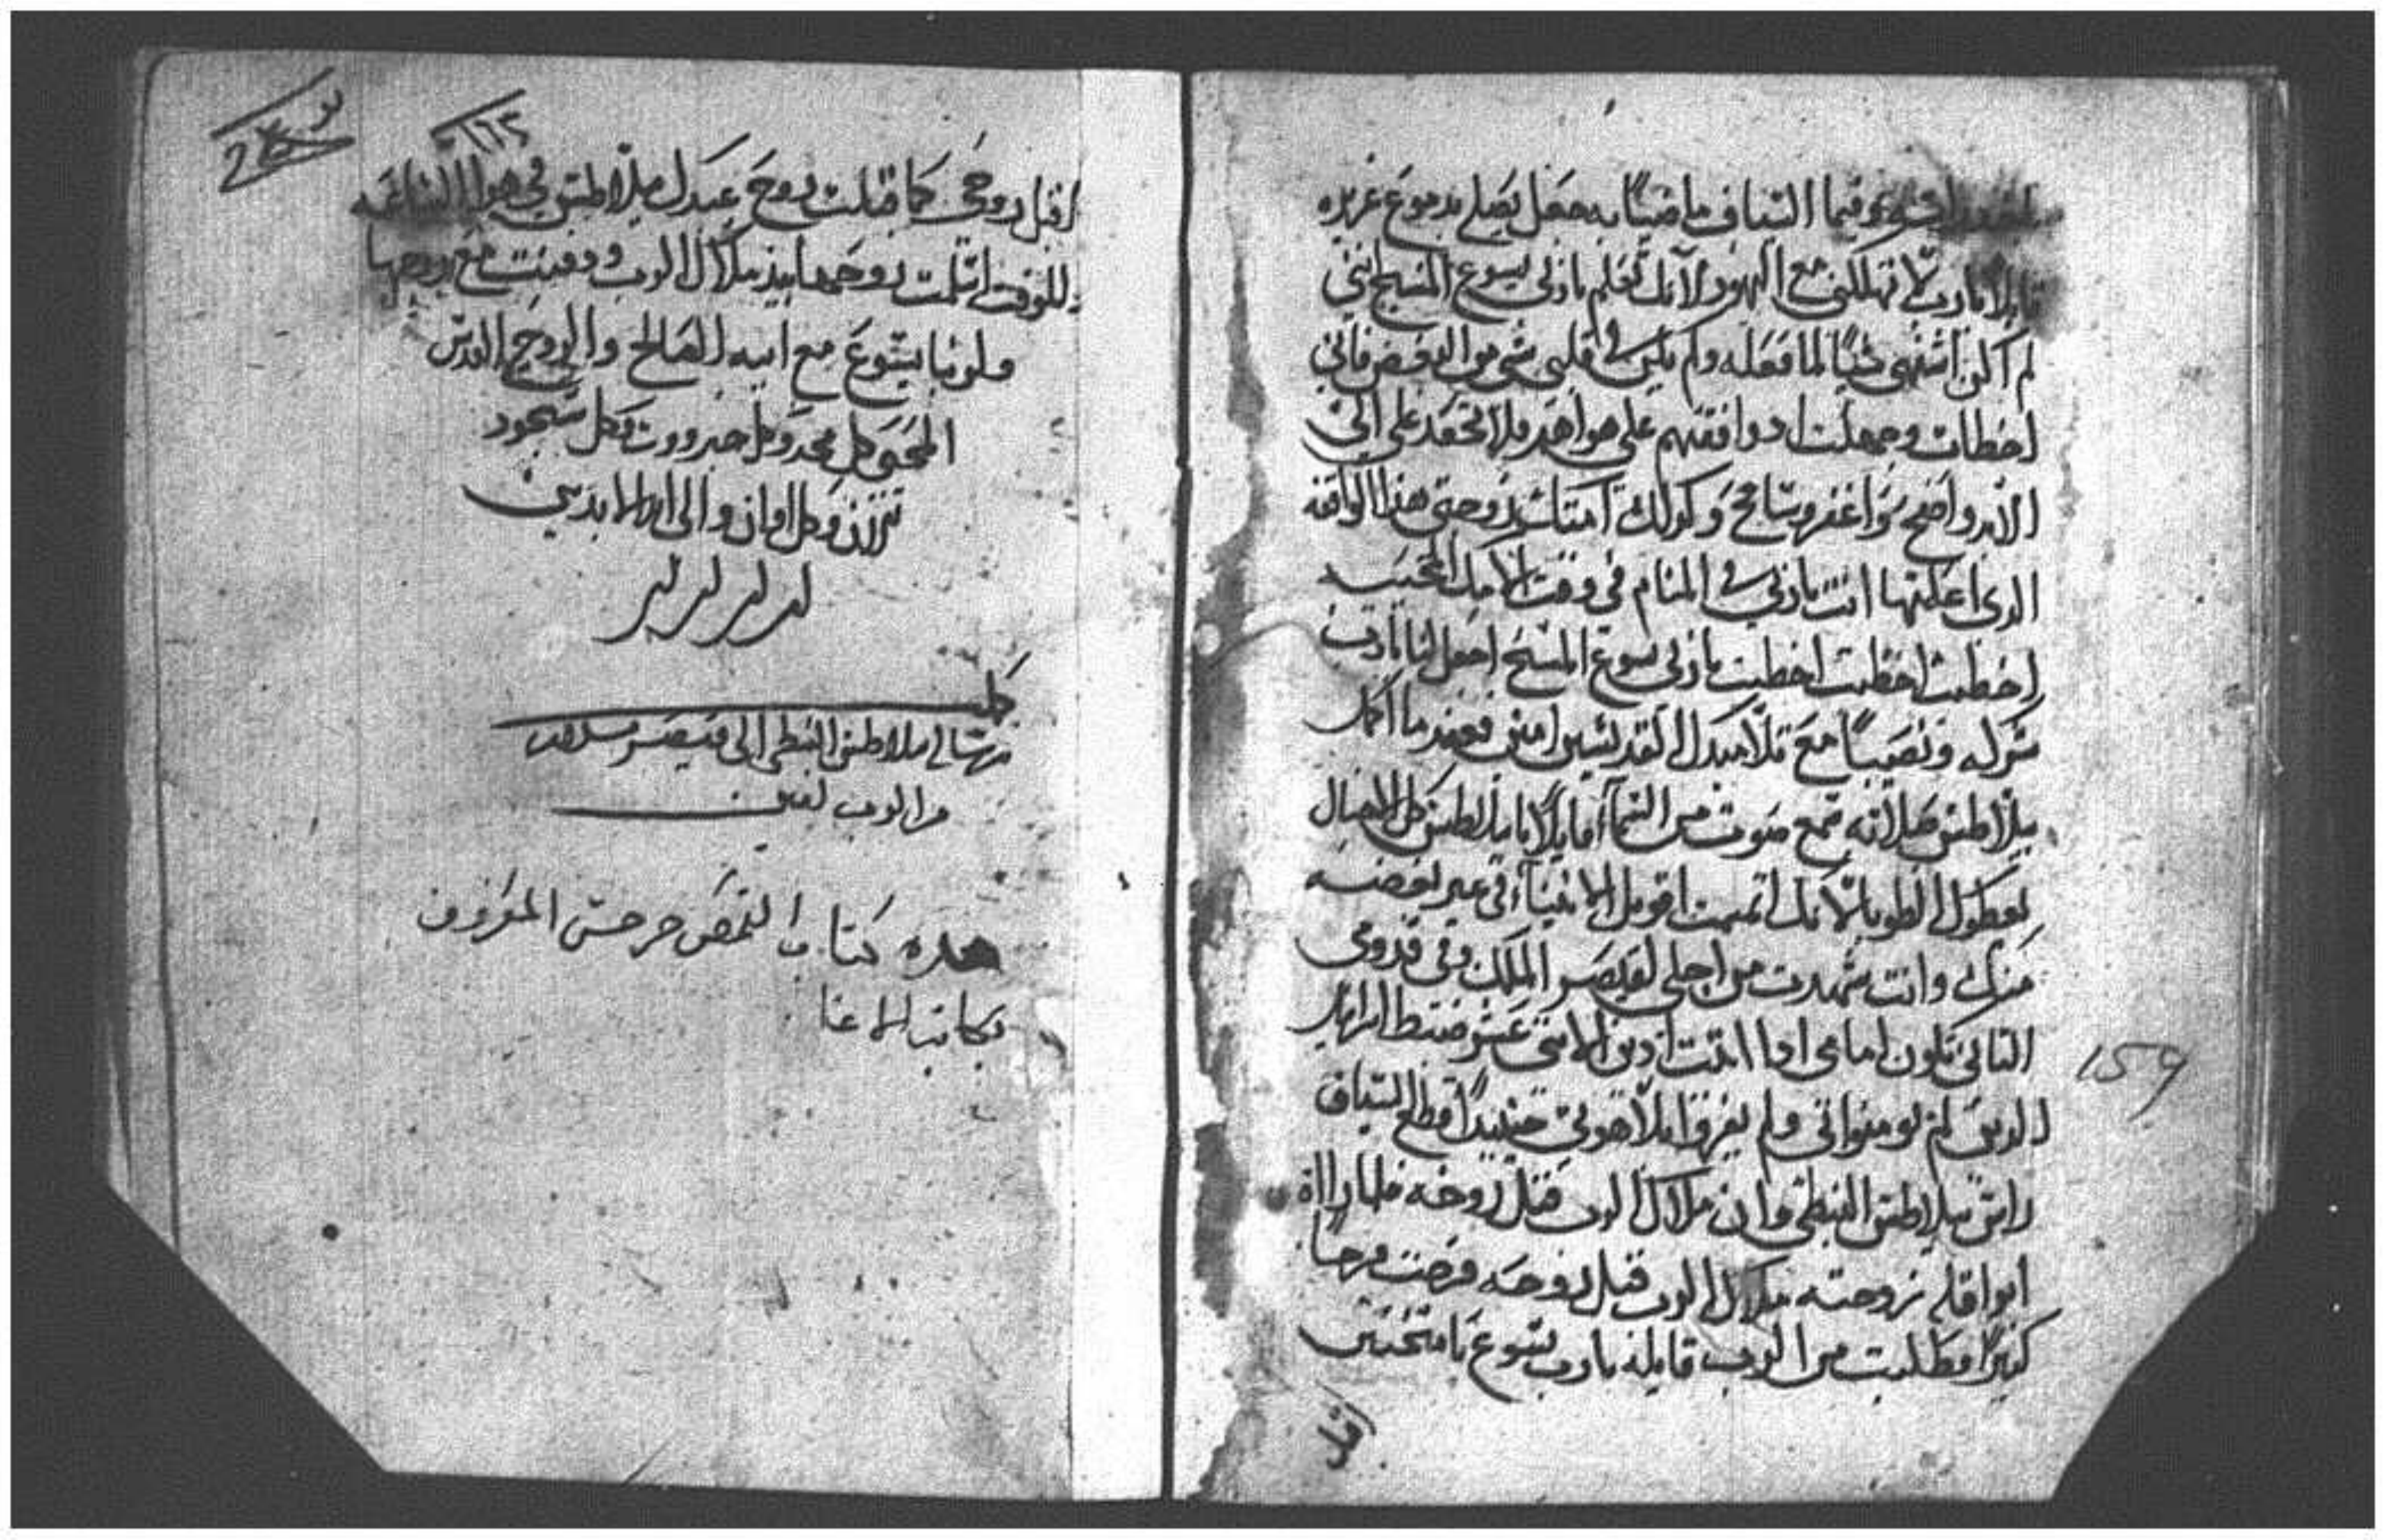 وفيما السياف ماضيًا به جعل يصلي بدموع غزيره
قايلا يارب لا تهلكني مع اليهود لانك تعلم ياربي يسوع المسيح انني
لم اكن اشتهي شيًا لما فعله ولم يكن في قلبي شي من البغض فاني
اخطات وجهلت اد وافقتهم على هواهم فلا تحقد علي الى
الابد واصفح واغفر وسامح وكدلك امتك زوجتي هذا الواقفه
الدي اعلمتها انت ياربي في المنام في وقت
اخطيت اخطيت اخطيت ياربي يسوع المسيح اجعل لنا يارب
شركه ونصيبًا مع تلاميدك القديسين امين وعند ما اكمل
بيلاطس صلاته سمع صوت من السما قايلًا يا بيلاطس كل الاجيال
يعطوك الطوبا لانك اتممت اقويل الانبيا في
منك وانت شهدت من اجلي لقيصر الملك وفي قدومي
التاني تكون امامي ادا اتيت ادين الاتني عشر سبط اسراييل
الدين لم يومنوا بي ولم يعرفوا بلاهوتي حينيدًا قطع السياف
راس بيلاطس النبطي وان ملاك الرب قبل روحه فلما راات
ابواقله زوجته ملاك الرب قبل روحه فرحت فرحًا
كبيرًا وطلبت من الرب قايله يارب يسوع يا متحنن
اقبل
159
١١٢
اقبل روحي كما قبلت روح عبدك بيلاطس في هذه الساعه
للوقت اسلمت روحها بيد ملاك الرب ودفنت مع زوجها
ولربنا يسوع مع ابيه الصالح والروح القدس
المحيي كل مجد وكل جبروت وكل سجود
من الان وكل اوان والى ابد الابدين
امين امين امين
كملت
رسالة بيلاطس النبطي الى قيصر بسلام
من الرب امين
هده كتاب القمص جرجس المعروف
بكاتب الاغا